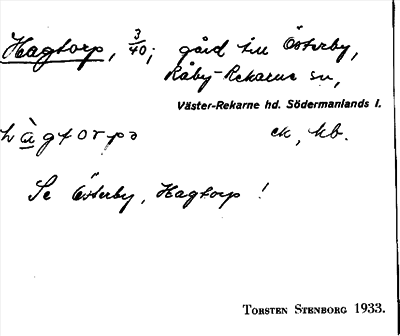 Hagtorp, 3/40; gård till Österby,
Råby-Rekarne sn,
Väster-Rekarne hd. Södermanlands l.
hàgtorpə ek, kb.
Se Österby, Hagtorp !
Torsten Stenborg 1933.